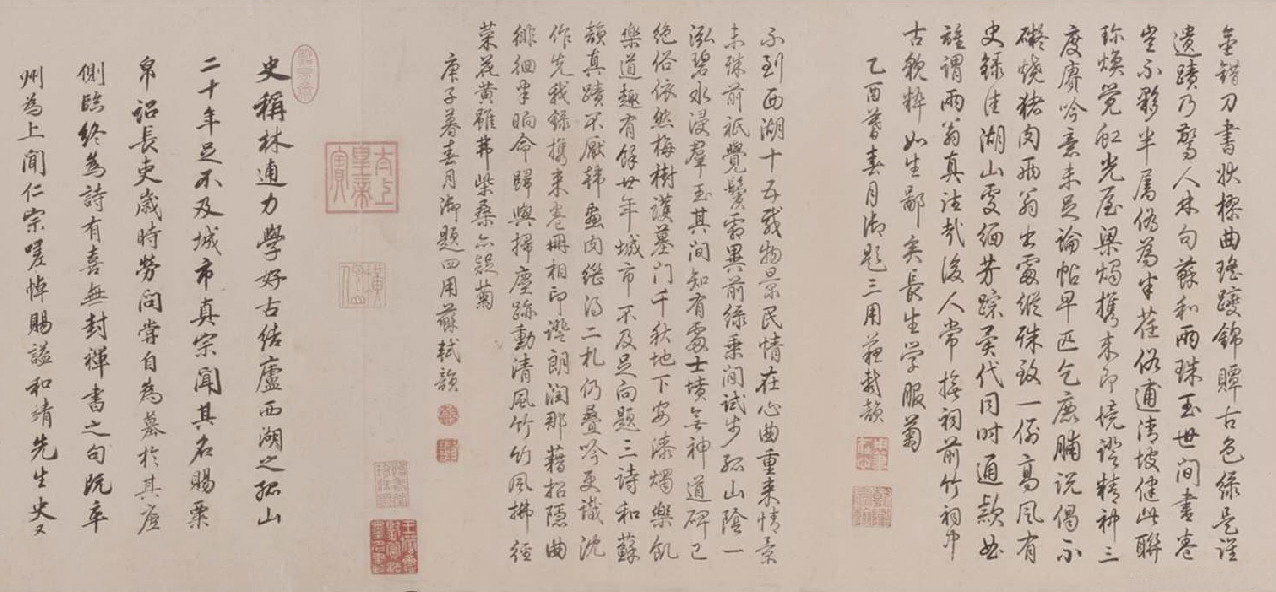 金錯刀書妝標曲瑤躞錦贉古色綠是誰
遺蹟乃驚人林句蘇和兩珠玉世間書卷
豈不夥半屬偽為半荏俗逋清坡健此聯
珍煥覺虹光屋梁燭攜來即境證精神三
度賡吟意未足論帖早匹乞鹿脯說偈不
礙燒猪肉兩翁出處縱殊致一例高風有
史錄往湖山處緬芳踪異代同時通款曲
誰謂兩翁真法後人常接祠前竹祠中
古貌粹如生鄙矣長生學服菊
乙酉暮春月御題三用蘇軾韻
不到西湖十五載物景民情在心曲重來情景
未殊前祇覺鬢霜異前綠乘閒試步孤山陰一
泓碧水浸羣玉其間知有處士墳無神道碑已
絕俗依然梅樹護墓門千秋地下安漆燭樂飢
樂道趣有餘廿年城市不及足向題三詩和蘇
韻真蹟不厭韓畫肉繼得二札仍疊吟更識沈
作先我錄攜來卷冊相印證朗潤那藉招隱曲
徘徊半晌命歸輿掃塵跡動清風竹竹風拂徑
菜花黃雖弗柴桑亦疑菊
庚子暮春月御題四用蘇軾韻
太上皇帝
史稱林逋力學好古結廬西湖之孤山
二十年足不及城市真宗聞其名賜粟
帛詔長吏歲時勞問嘗自為墓於其廬
側臨終為詩有喜無封禪書之句既卒
州為上聞仁宗嗟悼賜謚和靖先生史又